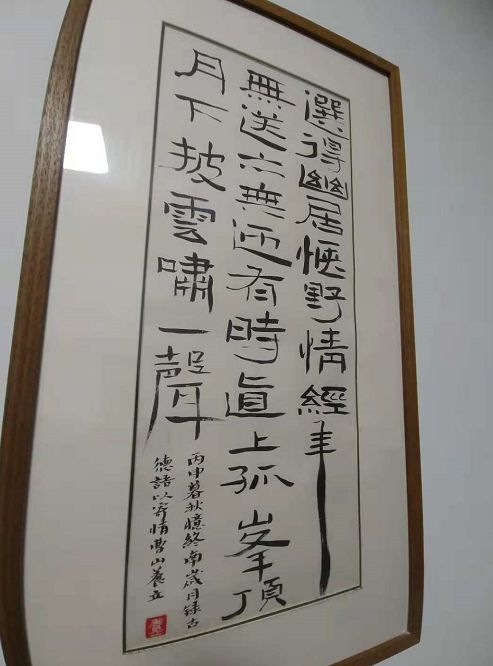 選得幽居愜野情經年
無送亦無迎有時直上孤峯頂
月下披雲嘯一聲
丙申暮秋憶終南歲月錄古
德諸以寄情曹山養立